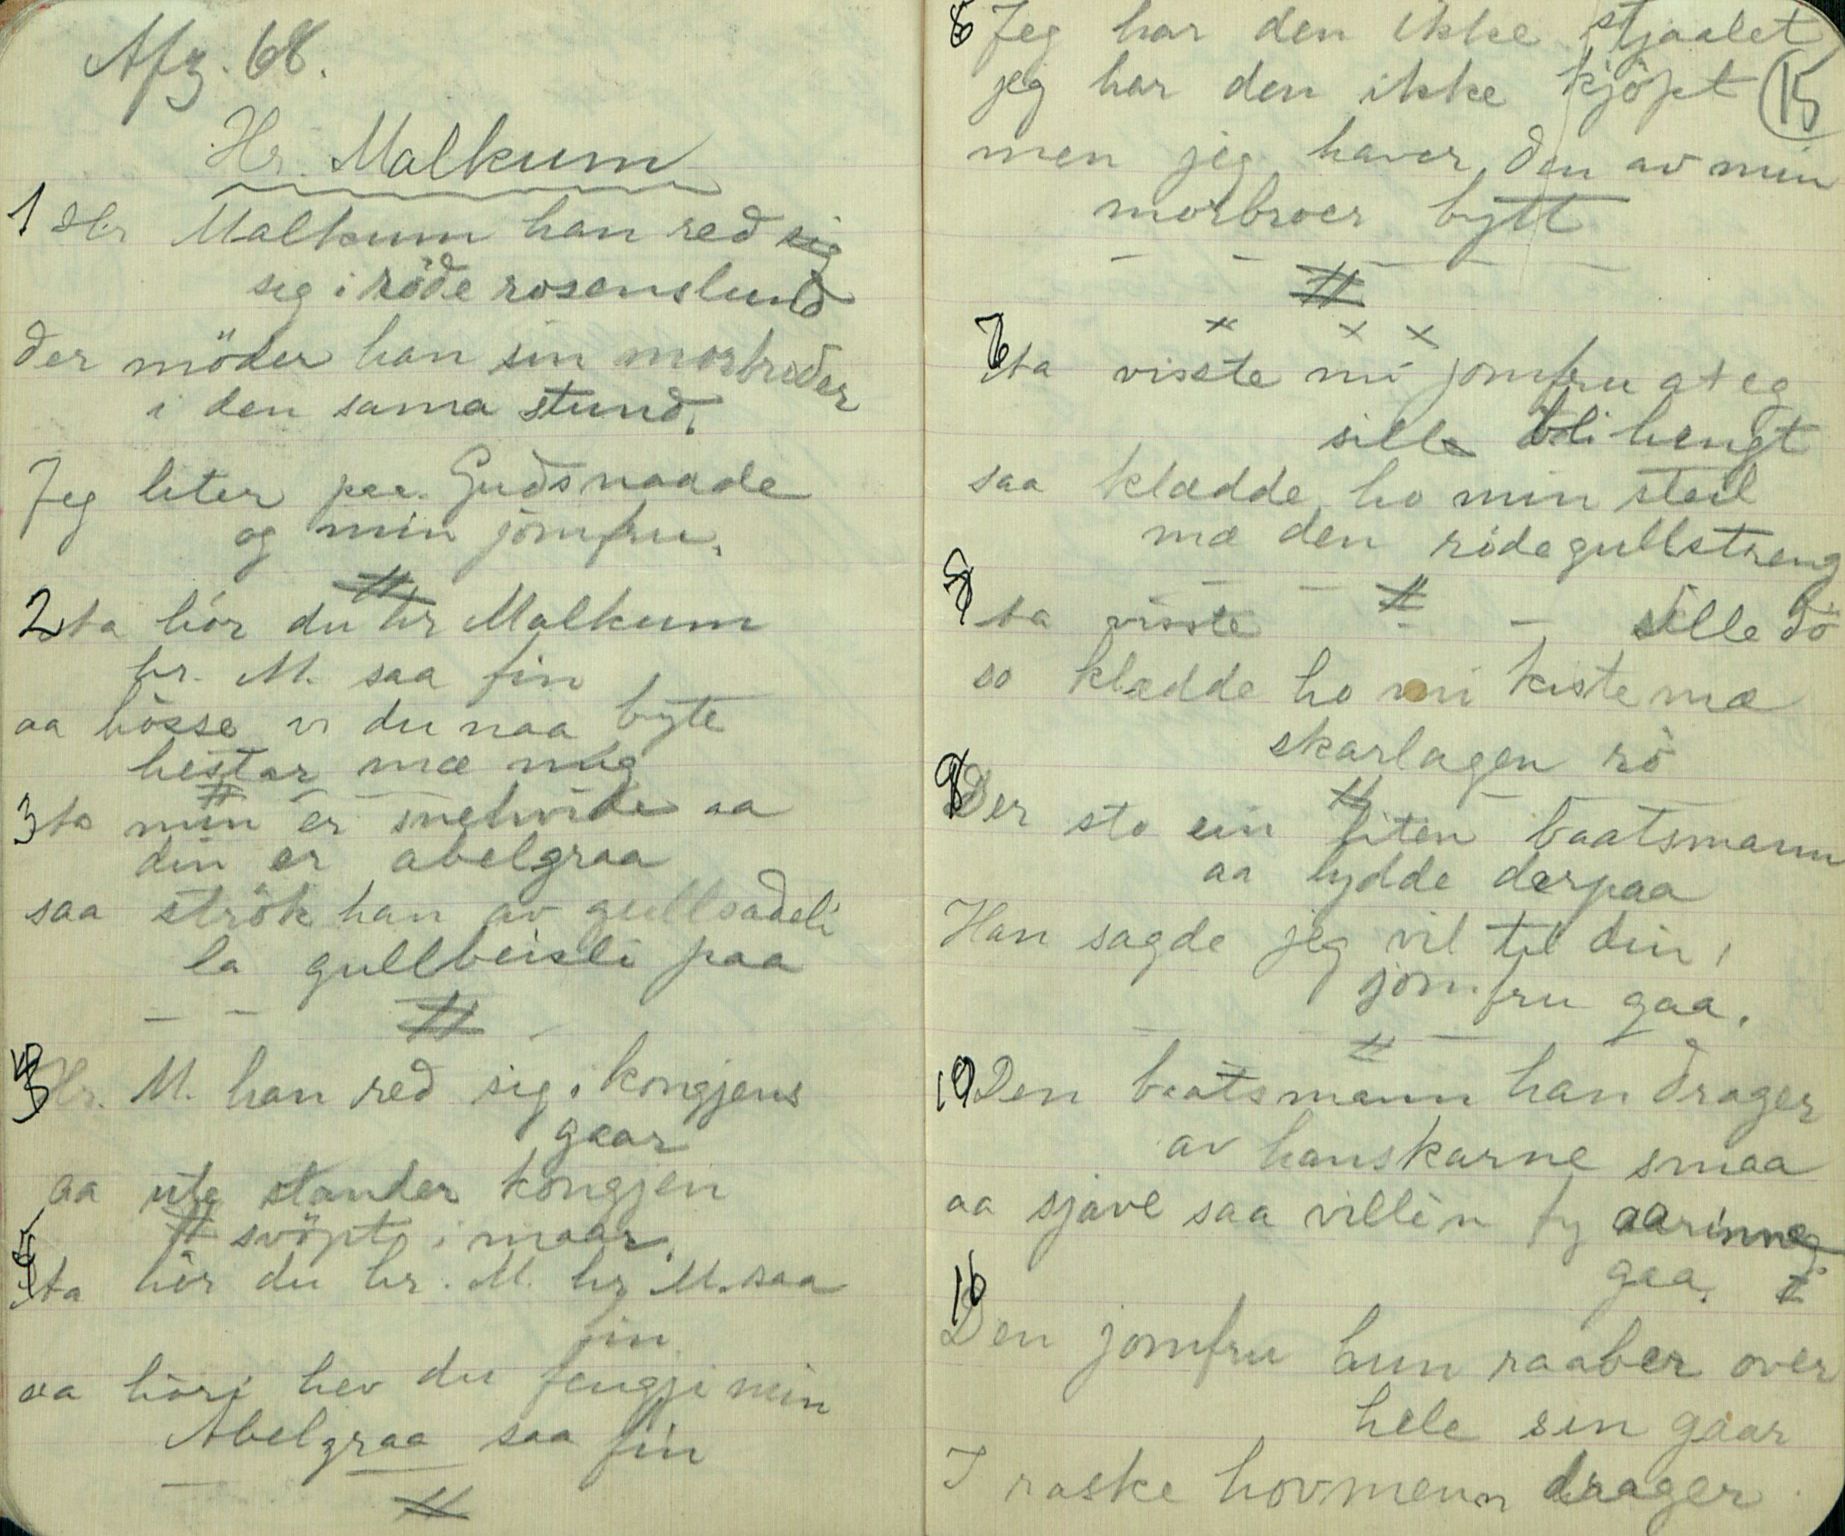 Afz. 68.
Hr. Malkum
1 Hr Malkum han red sig
sig i röde rosenslund
der möder han sin morbroder
i den sama stund.
Jeg liter paa Guds naade
og min jomfru.
2 Aa hör du hr Malkum
hr. M. saa fin
aa hösse vi du naa byte
hestar mæ mig
3 Aa min er snehvide aa
din er abelgraa
saa strök han av gullsadeli
la gullbeisli paa
Hr. M. han red sig i kongjens
gaar
aa ute stander kongjen
svöpt i maar.
Aa hör du hr. M. hr M. saa
fin
aa höri hev du fengji min
Abelgraa saa fin
Jeg har den ikke stjaalet
jeg har den ikke kjöpt (15)
men jeg haver den av min
morbroer bytt
Aa visste mi jomfru at eg
sille bli hengt
saa klædde ho min steil
mæ den röde gullstreng
Aa visste — — sille dö
so klædde ho mi kiste mæ
skarlagen rö
Der sto ein liten baatsmann
aa lydde derpaa
Han sagde jeg vil til din
jomfru gaa.
10 Den baatsmann han drager
av hanskarne smaa
aa sjave saa villin ty aarinne
gaa.
Den jomfru hun raaber over
hele sin gaar
I raske hovmenn drager